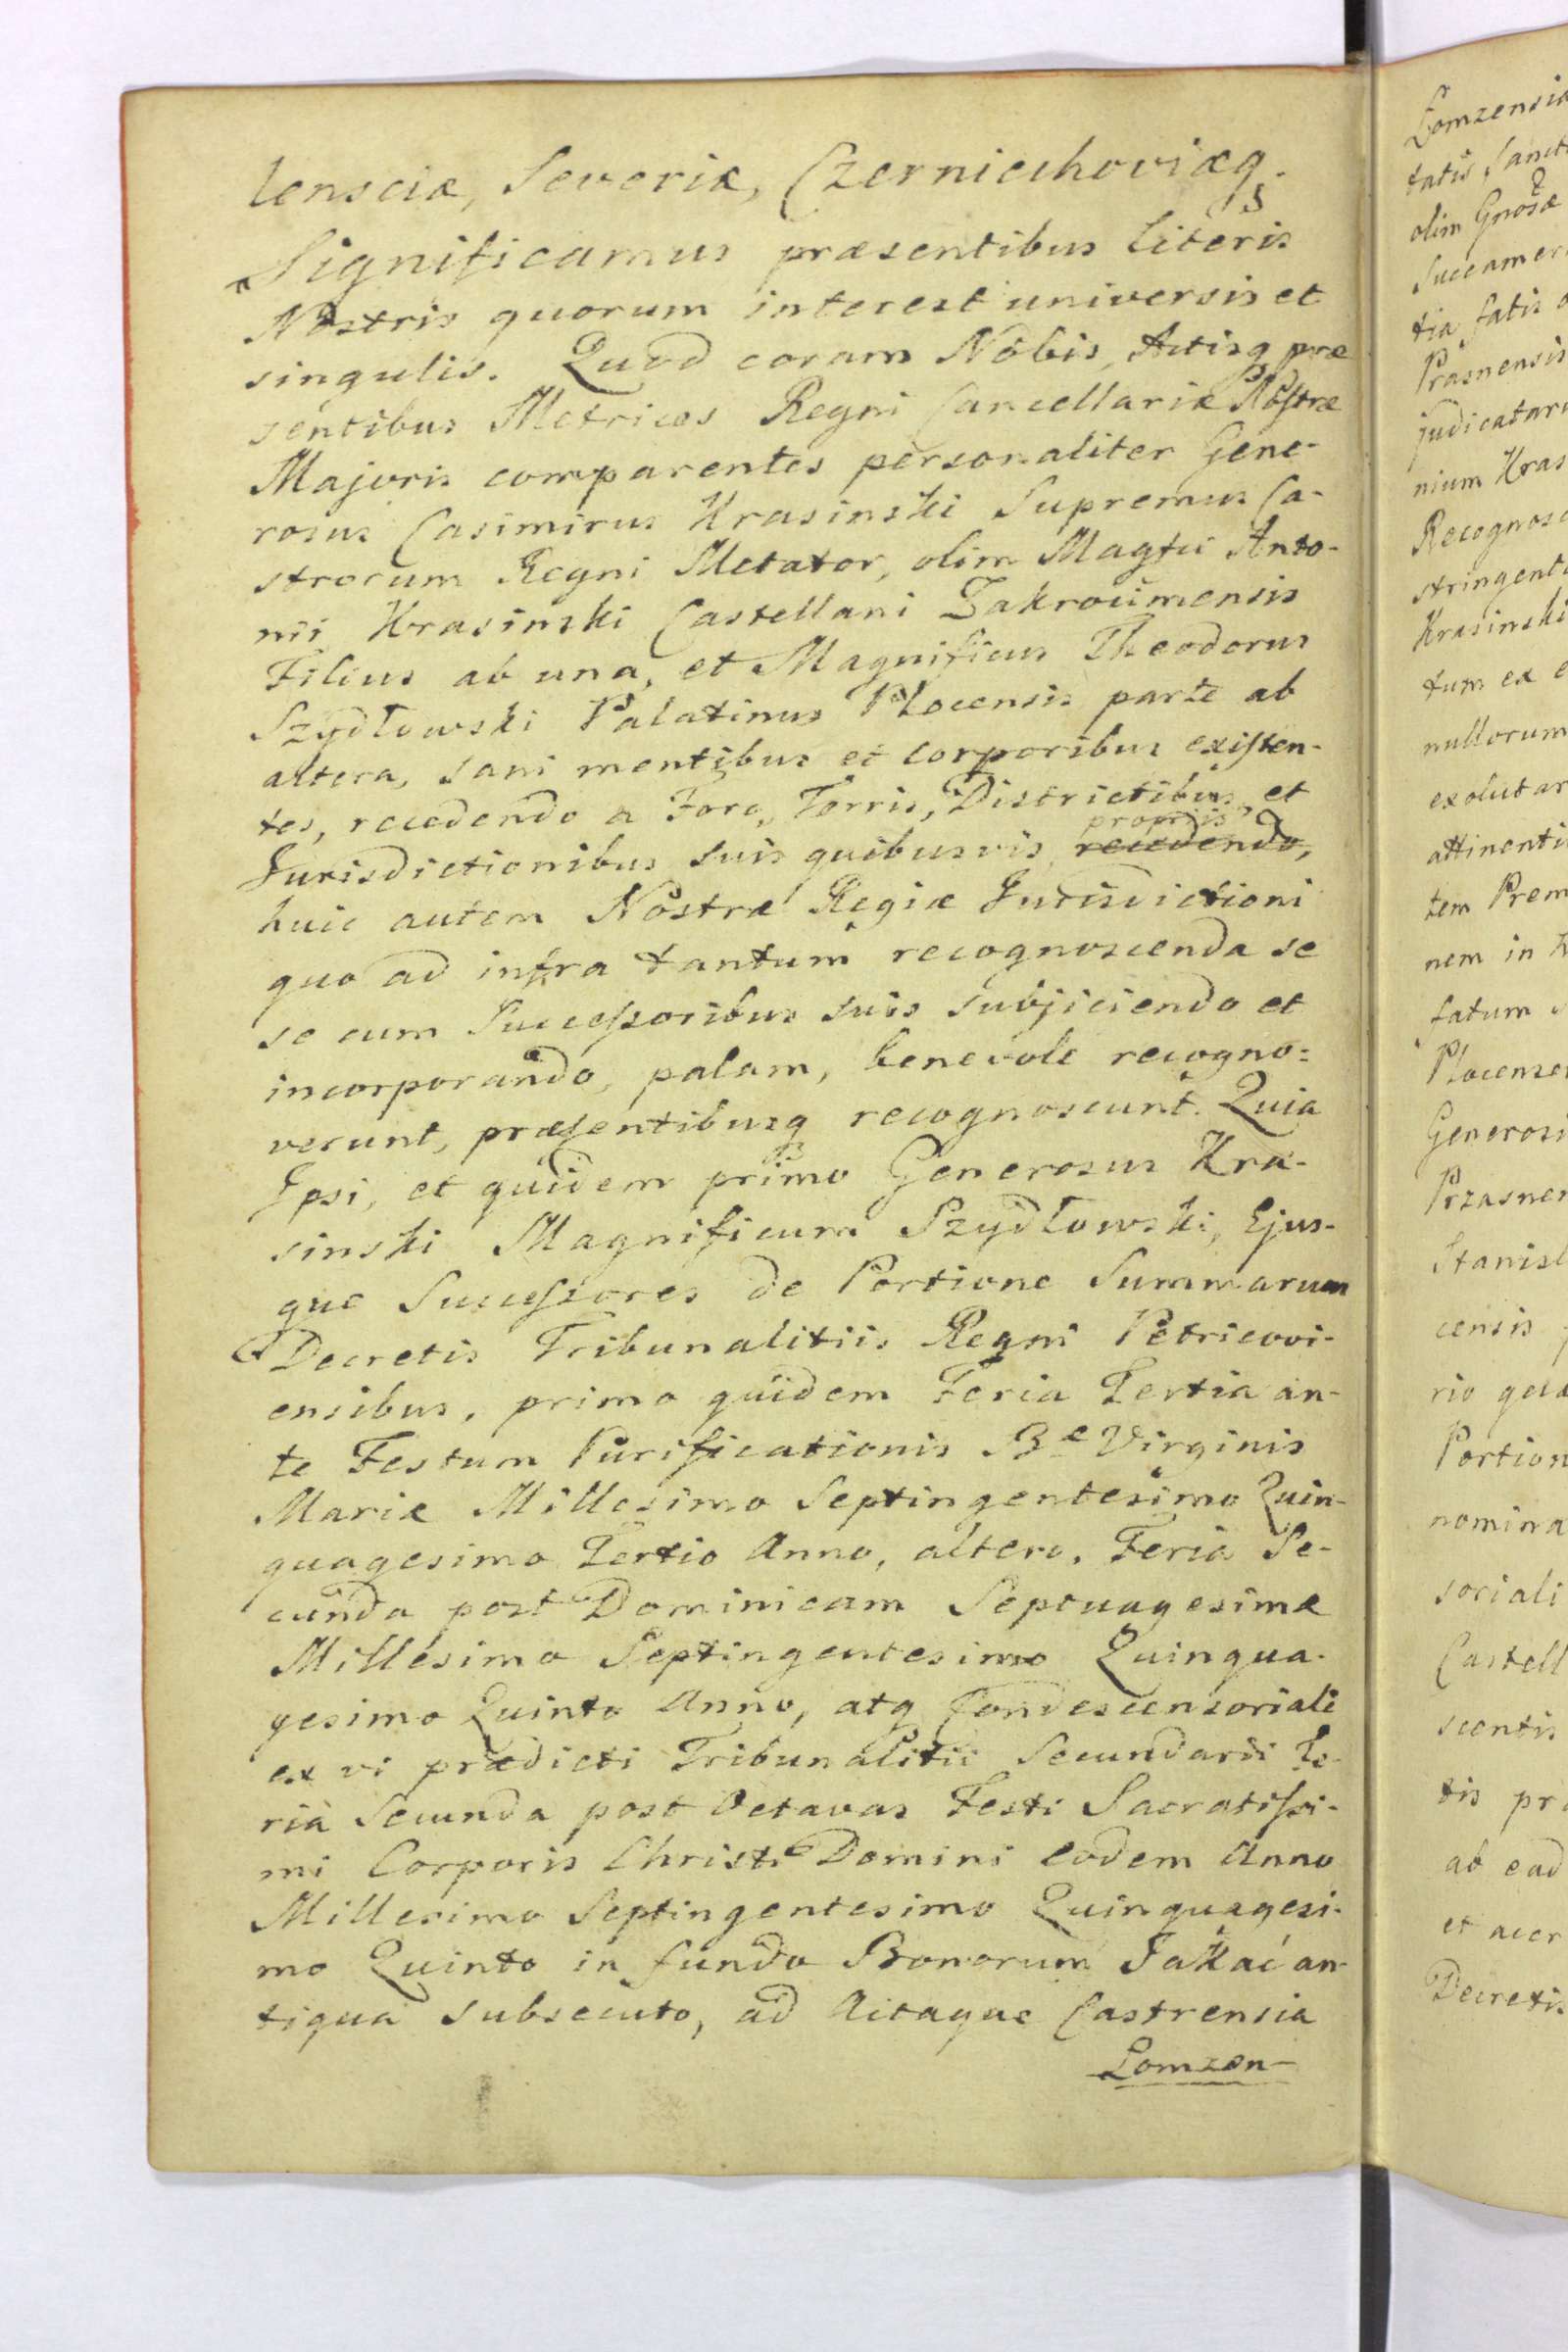 lensciæ, Severiæ, Czerniechoviæq.
Significamus præsentibus Literis
Nostris quorum interest universis et
singulis. Quod coram Nobis, Actisq præ
sentibus Metrices Regni Cancellariæ Nostræ
Majoris comparentes personaliter Gene-
rosus Casimirus Krasinski Supremus Ca-
strorum Regni Metator, olim Magfci Anto-
nii Krasinski Castellani Zakroumensis
Filius ab una, et Magnificus Theodorus
Szydłowski Palatinus Plocensis parte ab
altera, sani mentibus et corporibus existen-
tes, recedendo a Foro, Terris, Districtibus, et
Jurisdictionibus suis quibusvis propriis recedendo,
huic autem Nostræ Regiæ Jurisdictioni
quo ad infra tantum recognoscenda se
se cum Successoribus suis subjiciendo et
incorporando, palam, benevole recogno-
verunt, præsentibusq recognoscunt. Quia
Ipsi, et quidem primo Generosus Kra-
sinski Magnificum Szydłowski, Ejus-
que Successores de Portione Summarum
Decretis Tribunalitiis Regni Petricovi-
ensibus, primo quidem Feria Tertia an-
te Festum Purificationis Bæ Virginis
Mariæ Millesimo Septingentesimo Quin-
quagesimo Tertio Anno, altero, Feria Se-
cunda post Dominicam Septuagesimæ
Millesimo Septingentesimo Quinqua-
gesimo Quinto Anno, atq Condescensoriali
ex vi prædicti Tribunalitii Secundarii Fe-
ria Secunda post Octavas Festi Sacratissi-
mi Corporis Christi Domini eodem Anno
Millesimo Septingentesimo Quinquagesi-
mo Quinto in fundo Bonorum Jakać an-
tiqua subsecuto, ad Actaque Castrensia
Lomzen-
Lomzensia
tatis, Sanct
olim Gnosæ
Succamer
tia fatis
Prasnensis
judicatar
nium Kras
Recognosc
stringent
Krasinski
tum ex e
nullorum
exolutar
attinenti
tem Prem
nem in
latum
Plocense
Generosi
Przasne
Stanisl
censis
rio
Portion
nomina
soriali
Castell
scentis
tis pr
ab ead
et accr
Decretis